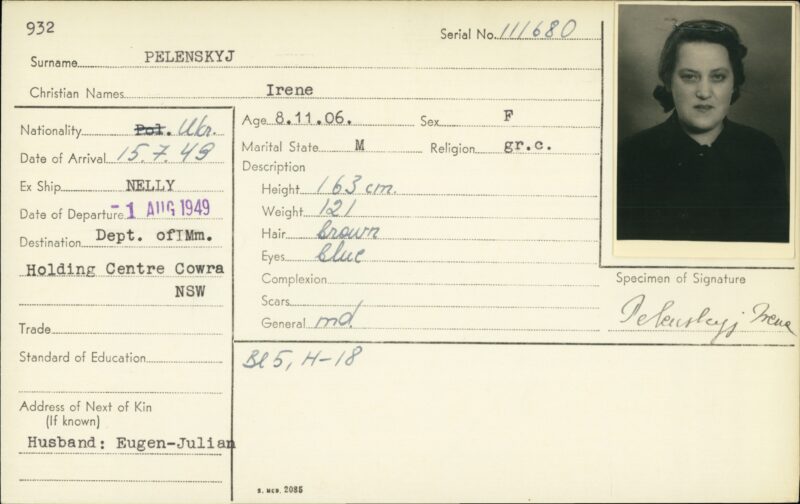 932
Serial No. 111680
Surname PELENSKYJ
Christian Names Irene
Nationality Pol. Ukr.
Date of Arrival 15.7.49
Ex Ship NELLY
Date of Departure -1 AUG 1949
Destination Dept. of IMm.
Holding Centre Cowra
NSW
Trade
Standard of Education
Address of Next of Kin
(If known)
Husband: Eugen-Julian
Age 8.11.06. Sex F
Marital State M Religion gr.c.
Description
Height 163 cm.
Weight 121
Hair brown
Eyes blue
Complexion
Scars
General md.
Bl 5, H-18
S. MCD. 2085
Specimen of Signature
Pelenskyj Irena